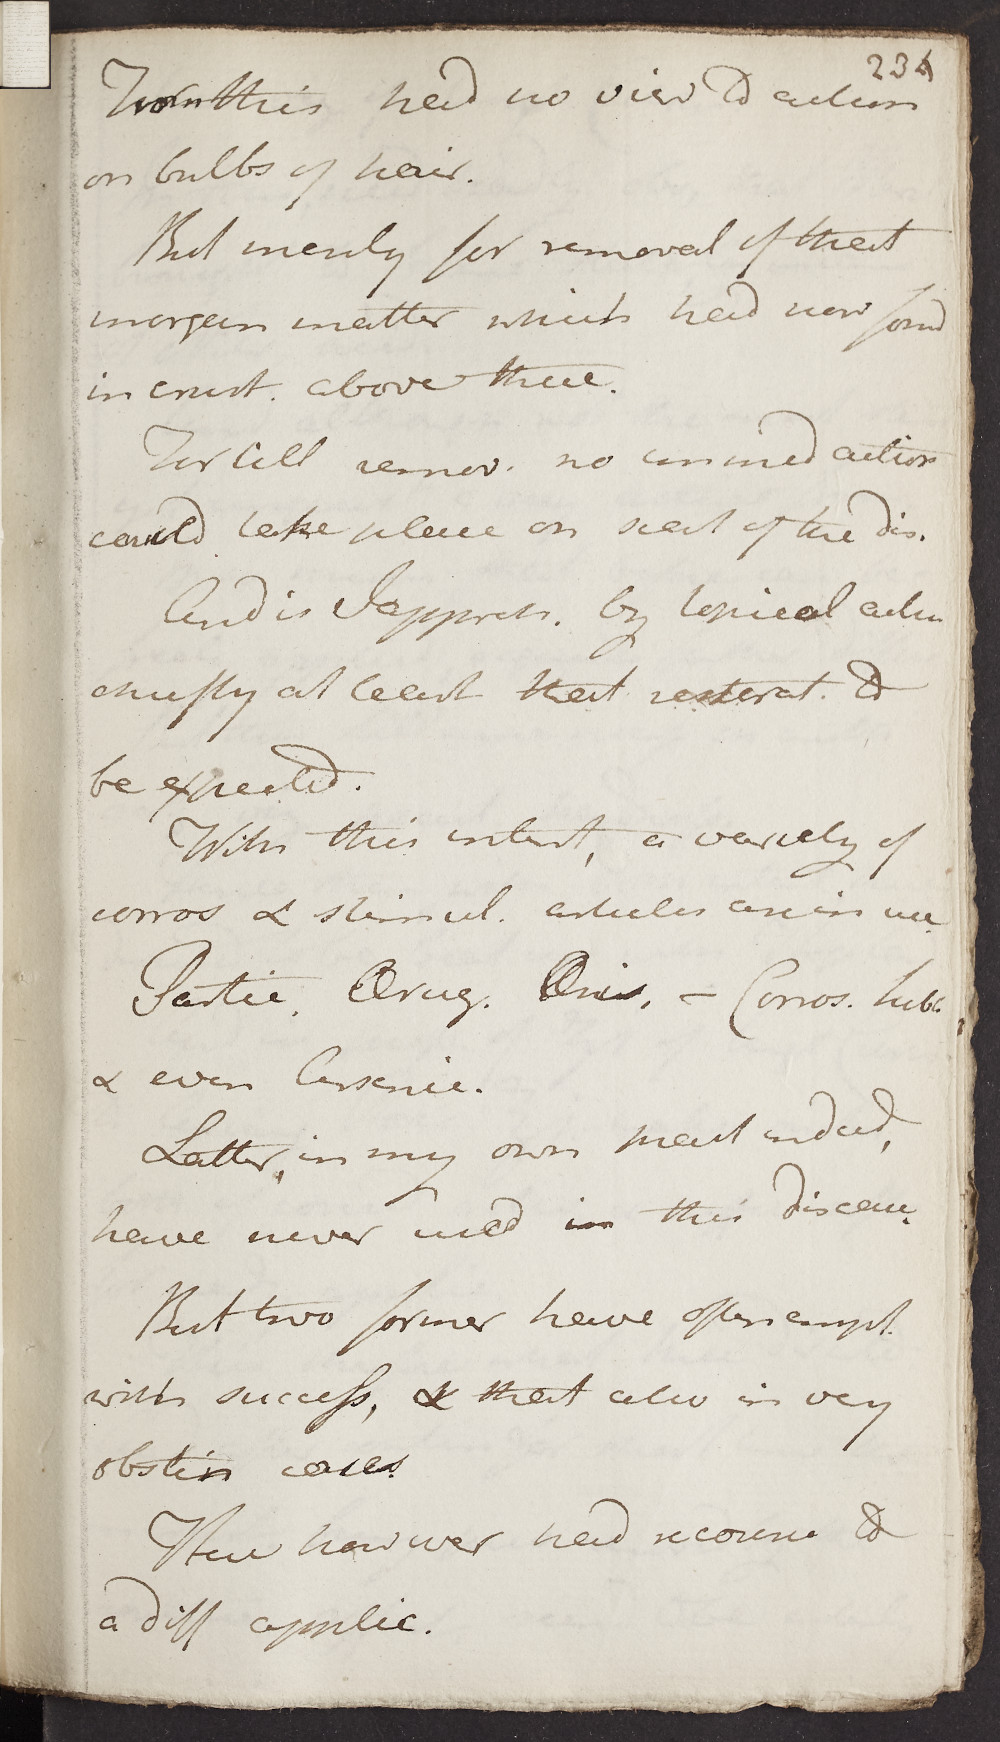 234
From this had no view to action
on bulbs of hair.
But merely for removal of that
inorgan matter which had now form'd
in crust. above these.
For till remov. no immed action
could take place on seat of the dis.
And is I appreh. by topical action
chiefly at least that restorat. to
be expected.
With this intent, a variety of
corros & stimul. articles are in use
Partic. Ærug. Æris, – Corros. Subl.
& even Arsenic.
Latter, in my own pract indeed,
have never used in this disease.
But two former have often empl.
with success, & that also in very
obstin cases.
Here however had recourse to
a diff applic.